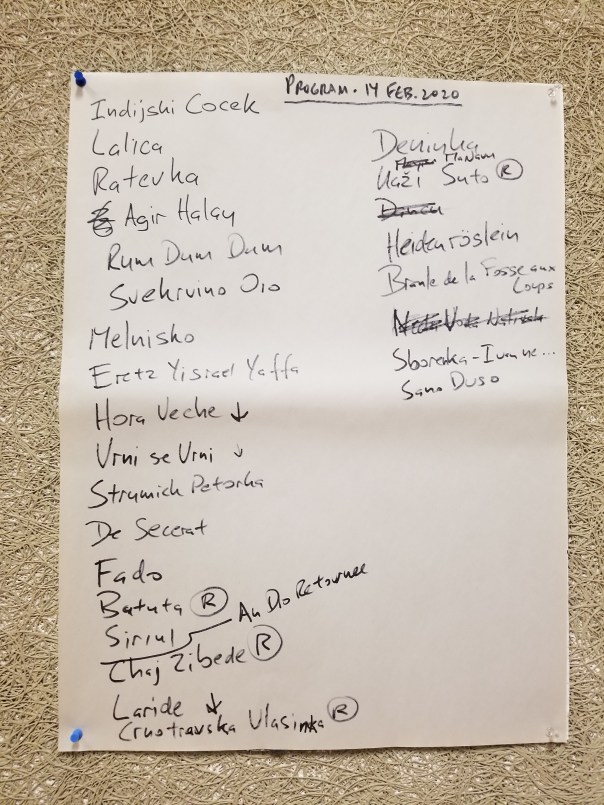 PROGRAM. 14 FEB. 2020
Indijski Cocek
Lalica
Ratevka
Agir Halay
Rum Dum Dum
Svekrvino Oro
Melnisko
Eretz Yisrael Yaffa
Hora Veche ↓
Vrni se Vrni ↓
Strumick Petorka
De Secerat
Fado
Batuta Ⓡ
Siriul
An Dro Retournee
Chaj Zibede Ⓡ
Laride ↓
Crnotravska Vlasinka Ⓡ
Deninka
Manam
Kaži Suto Ⓡ
Heidenröslein
Branle de la Fosse aux
Loups
Sborenka - Ivanne...
Sano Duso